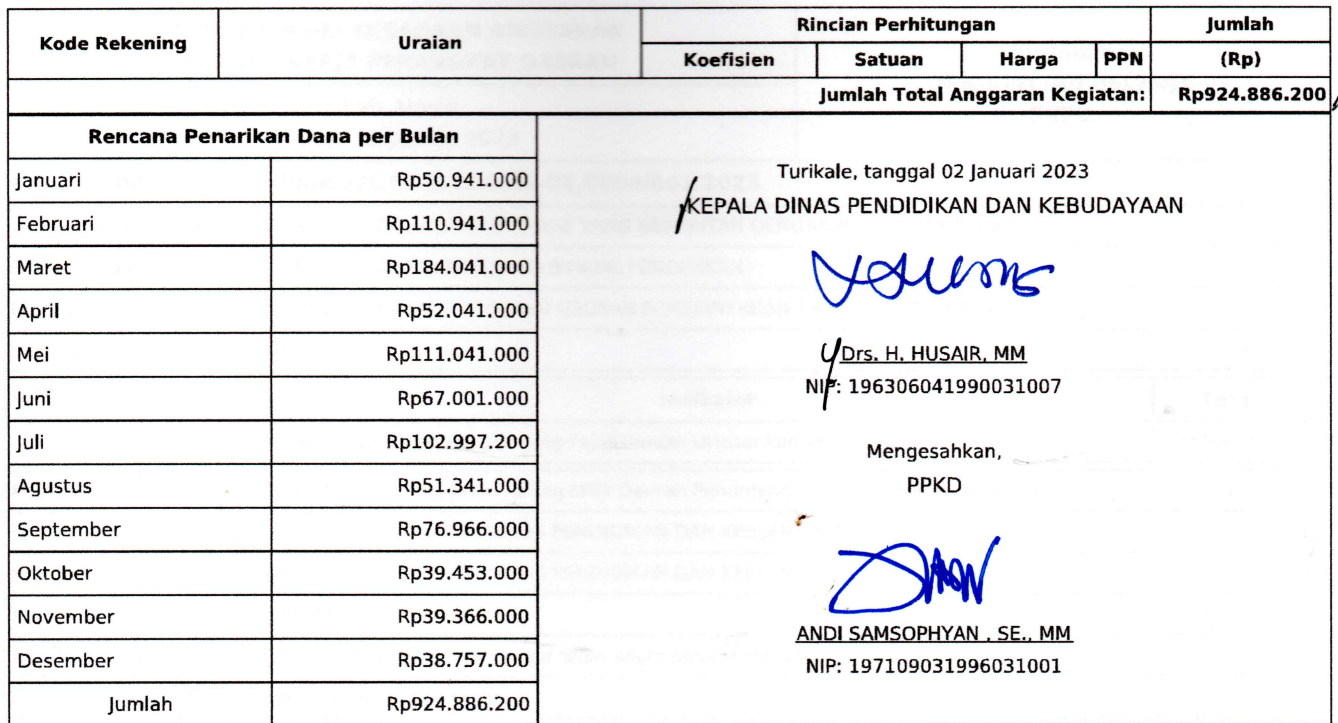 Kode Rekening Uraian Rincian Perhitungan Jumlah (Rp)
Koefisien Satuan Harga PPN
Jumlah Total Anggaran Kegiatan: Rp924.886.200
Rencana Penarikan Dana per Bulan
Januari Rp50.941.000
Februari Rp110.941.000
Maret Rp184.041.000
April Rp52.041.000
Mei Rp111.041.000
Juni Rp67.001.000
Juli Rp102.997.200
Agustus Rp51.341.000
September Rp76.966.000
Oktober Rp39.453.000
November Rp39.366.000
Desember Rp38.757.000
Jumlah Rp924.886.200
Turikale, tanggal 02 Januari 2023
KEPALA DINAS PENDIDIKAN DAN KEBUDAYAAN
Drs. H. HUSAIR, MM
NIP: 196306041990031007
Mengesahkan,
PPKD
ANDI SAMSOPHYAN , SE., MM
NIP: 197109031996031001